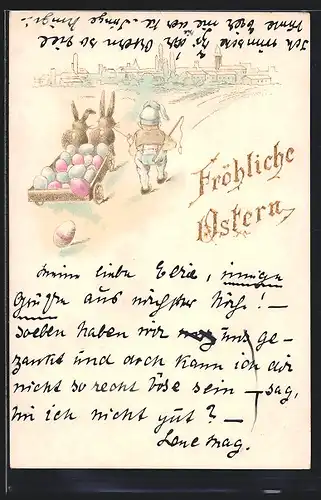 Ich wünsche dir Ostern so viel
Fröhliche
Ostern
meine liebe Elsie, innige
Grüße aus nächster Nähe! —
soeben haben wir uns ge-
zankt und doch kann ich dir
nicht so recht böse sein — sag,
bin ich nicht gut? —
Lone mag.